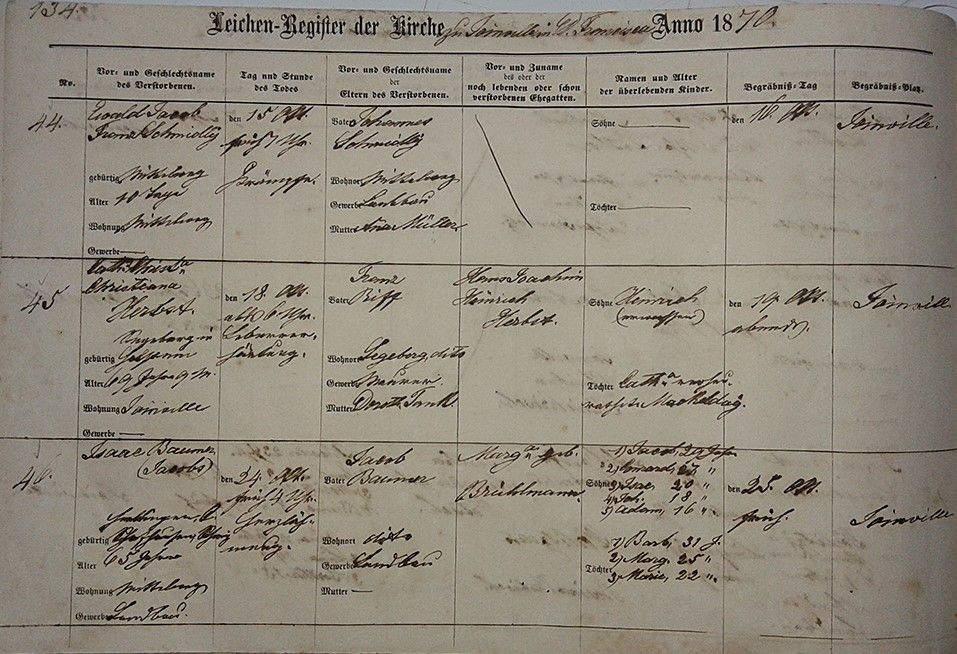 134.
Leichen-Register der Kirche zu Joinville in S. Francisca Anno 1870.
No.
Vor- und Geschlechtsname des Verstorbenen.
Tag und Stunde des Todes
Vor- und Geschlechtsname der Eltern des Verstorbenen.
Vor- und Zuname des oder der noch lebenden oder schon verstorbenen Ehegatten.
Namen und Alter der überlebenden Kinder.
Begräbniß-Tag
Begräbniß-Platz.
44.
Ewald Jacob
Franz Schmidlin
gebürtig Mittelweg
Alter 10 Tage
Wohnung Mittelweg
Gewerbe —
den 15 Okt.
früh 7 Uhr.
Krämpfe.
Vater Johannes
Schmidlin
Wohnort Mittelweg
Gewerbe Landbau
Mutter Anna Müller
Söhne —
Töchter —
den 16. Okt.
Joinville.
45
Cath. Christa
Christiana
Herbst.
gebürtig
Alter 69 Jahre 9 M.
Wohnung Joinville
Gewerbe —
den 18. Okt.
ab. 6 Uhr.
Leberver-
härtung.
Franz
Vater Riff
Wohnort Segeberg, dito
Gewerbe Maurer.
Mutter Doroth. Tank.
Hans Joachim
Heinrich
Herbst.
Söhne Heinrich
(erwachsen)
Töchter Cath.
den 19. Okt.
abends.
Joinville
46.
Isaac Baumer
(Jacobs)
gebürtig
Alter 65 Jahre
Wohnung Mittelweg
Gewerbe Landbau.
den 24. Okt.
früh 4 Uhr.
Jacob
Vater Baumer
Wohnort dito
Gewerbe Landbau
Mutter —
Marga geb.
Brühlmann.
1) Jacob, 29 Jah.
2) 27 "
Söhne 3) Isac, 20 "
4) Joh. 18 "
5) Adam, 16 "
1) Barb. 31 J.
2) Marg. 25 "
Töchter 3) Marie, 22 "
den 25. Okt.
früh.
Joinville